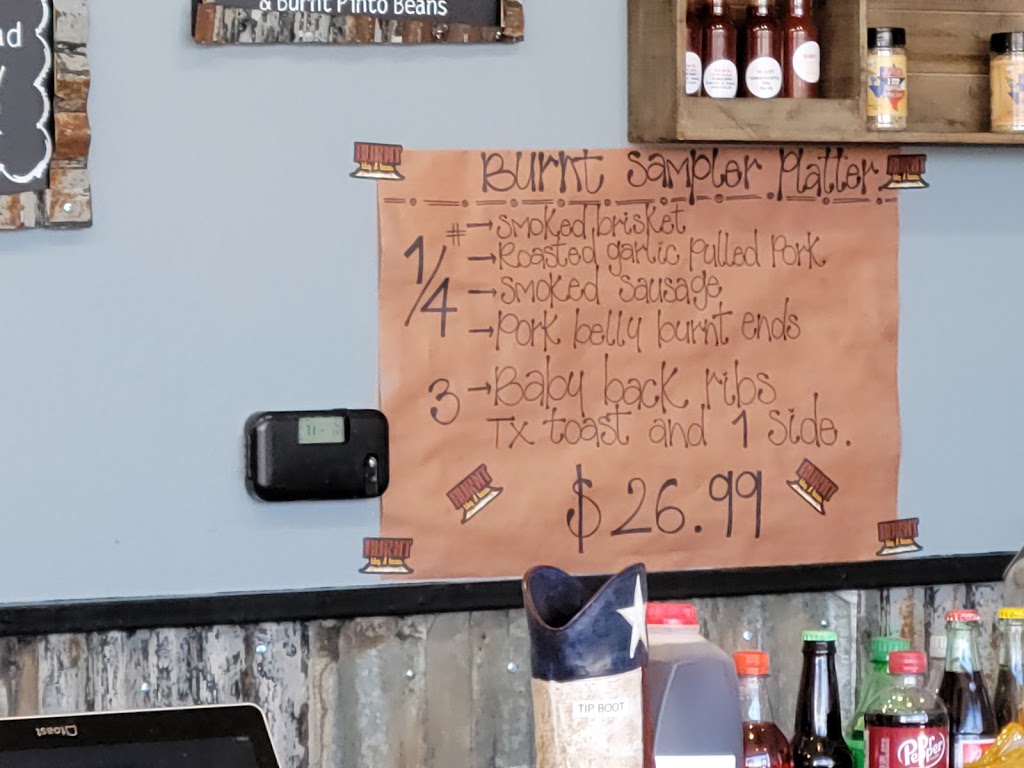 & Burnt Pinto Beans
Burnt Sampler Platter
1/4 # → Smoked brisket
→ Roasted garlic pulled pork
→ Smoked sausage
→ Pork belly burnt ends
3 → Baby back ribs
TX toast and 1 side.
$26.99
BURNT
BURNT
BURNT
BURNT
BURNT
BURNT
TIP BOOT
toast
Dr Pepper